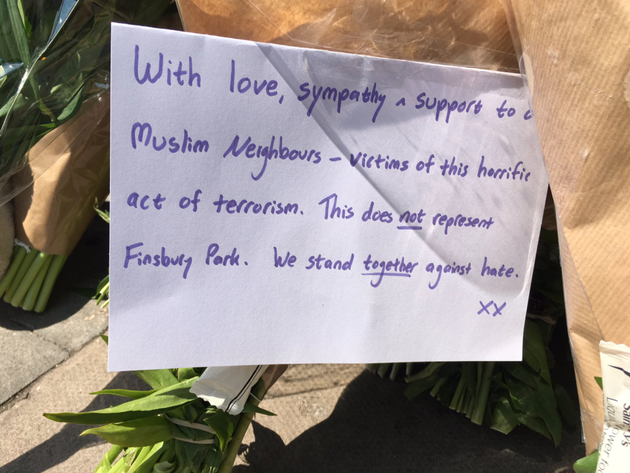 With love, sympathy & support to
Muslim Neighbours – victims of this horrific
act of terrorism. This does not represent
Finsbury Park. We stand together against hate.
xx